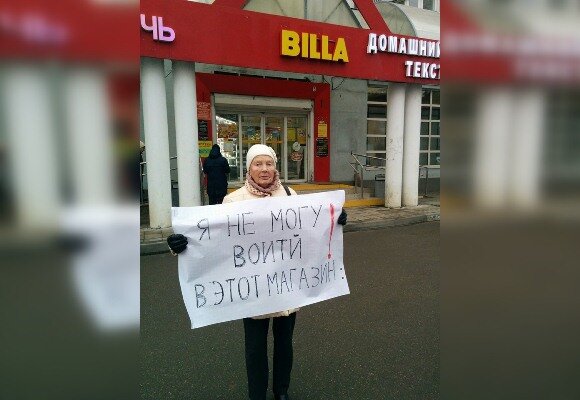 ЧЬ
BILLA
ДОМАШНИЙ
ТЕКСТ
Я НЕ МОГУ
ВОИТЙ !
В ЭТОТ МАГАЗИН.